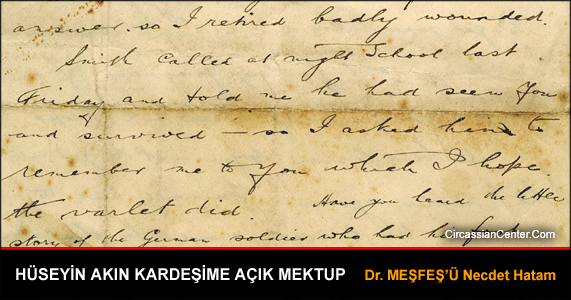 answer. so I retired badly wounded.
Smith called at night School last
Friday and told me he had seen You
and survived — so I asked him to
remember me to You which I hope
the varlet did. Have you heard the little
story of the German soldier who had his foot
CircassianCenter.Com
HÜSEYİN AKIN KARDEŞİME AÇIK MEKTUP Dr. MEŞFEŞ'Ü Necdet Hatam